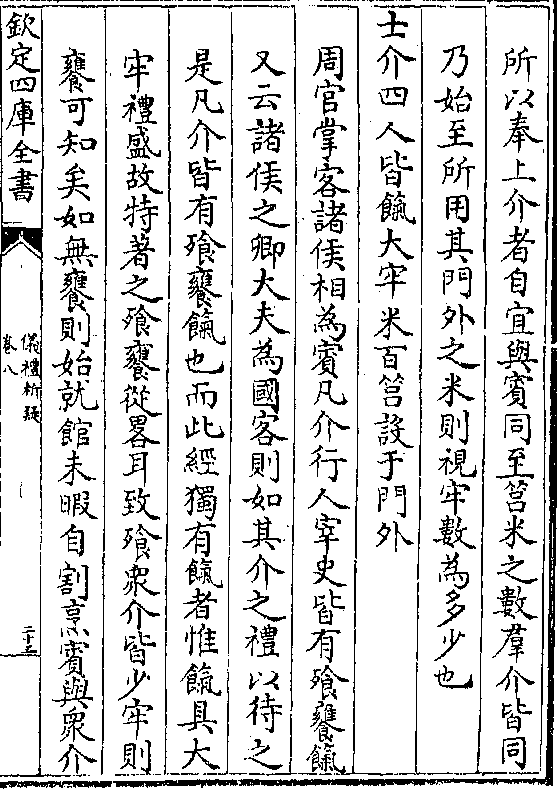 所以奉上介者自宜與賓同至筥米之數羣介皆同
乃始至所用其門外之米則視牢數為多少也
士介四人皆餼大牢米百筥設于門外
周官掌客諸侯相為賓凡介行人宰史皆有飱饔餼
又云諸侯之卿大夫為國客則如其介之禮以待之
是凡介皆有飱饔餼也而此經獨有餼者惟餼具大
牢禮盛故特著之飱饔從畧耳致飱衆介皆少牢則
饔可知矣如無饔則始就館未暇自割烹賓與衆介
欽定四庫全書
儀禮析疑
卷八
二十三